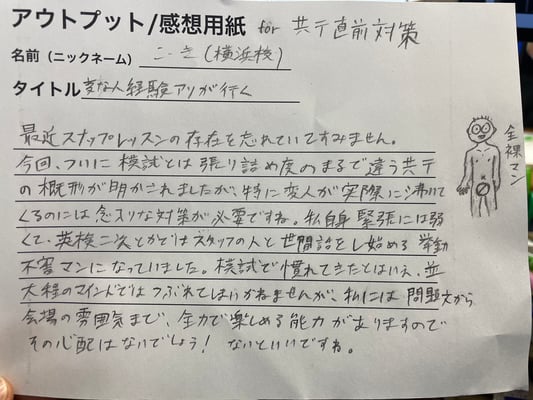 アウトプット/感想用紙 for 共テ直前対策
名前（ニックネーム） こーき(横浜校)
タイトル 変な人経験アリが行く
最近スナップレッスンの存在を忘れていてすみません。
今回、ついに模試とは張り詰め度のまるで違う共テ
の概形が明かされましたが、特に変人が実際に沸いて
くるのには念入りな対策が必要ですね。私自身緊張には弱
くて、英検二次とかではスタッフの人と世間話をし始める挙動
不審マンになっていました。模試で慣れてきたとはいえ、並
大程のマインドではつぶれてしまいかねませんが、私には問題文から
会場の雰囲気まで、全力で楽しめる能力がありますので
その心配はないでしょう! ないといいですね。
全裸マン